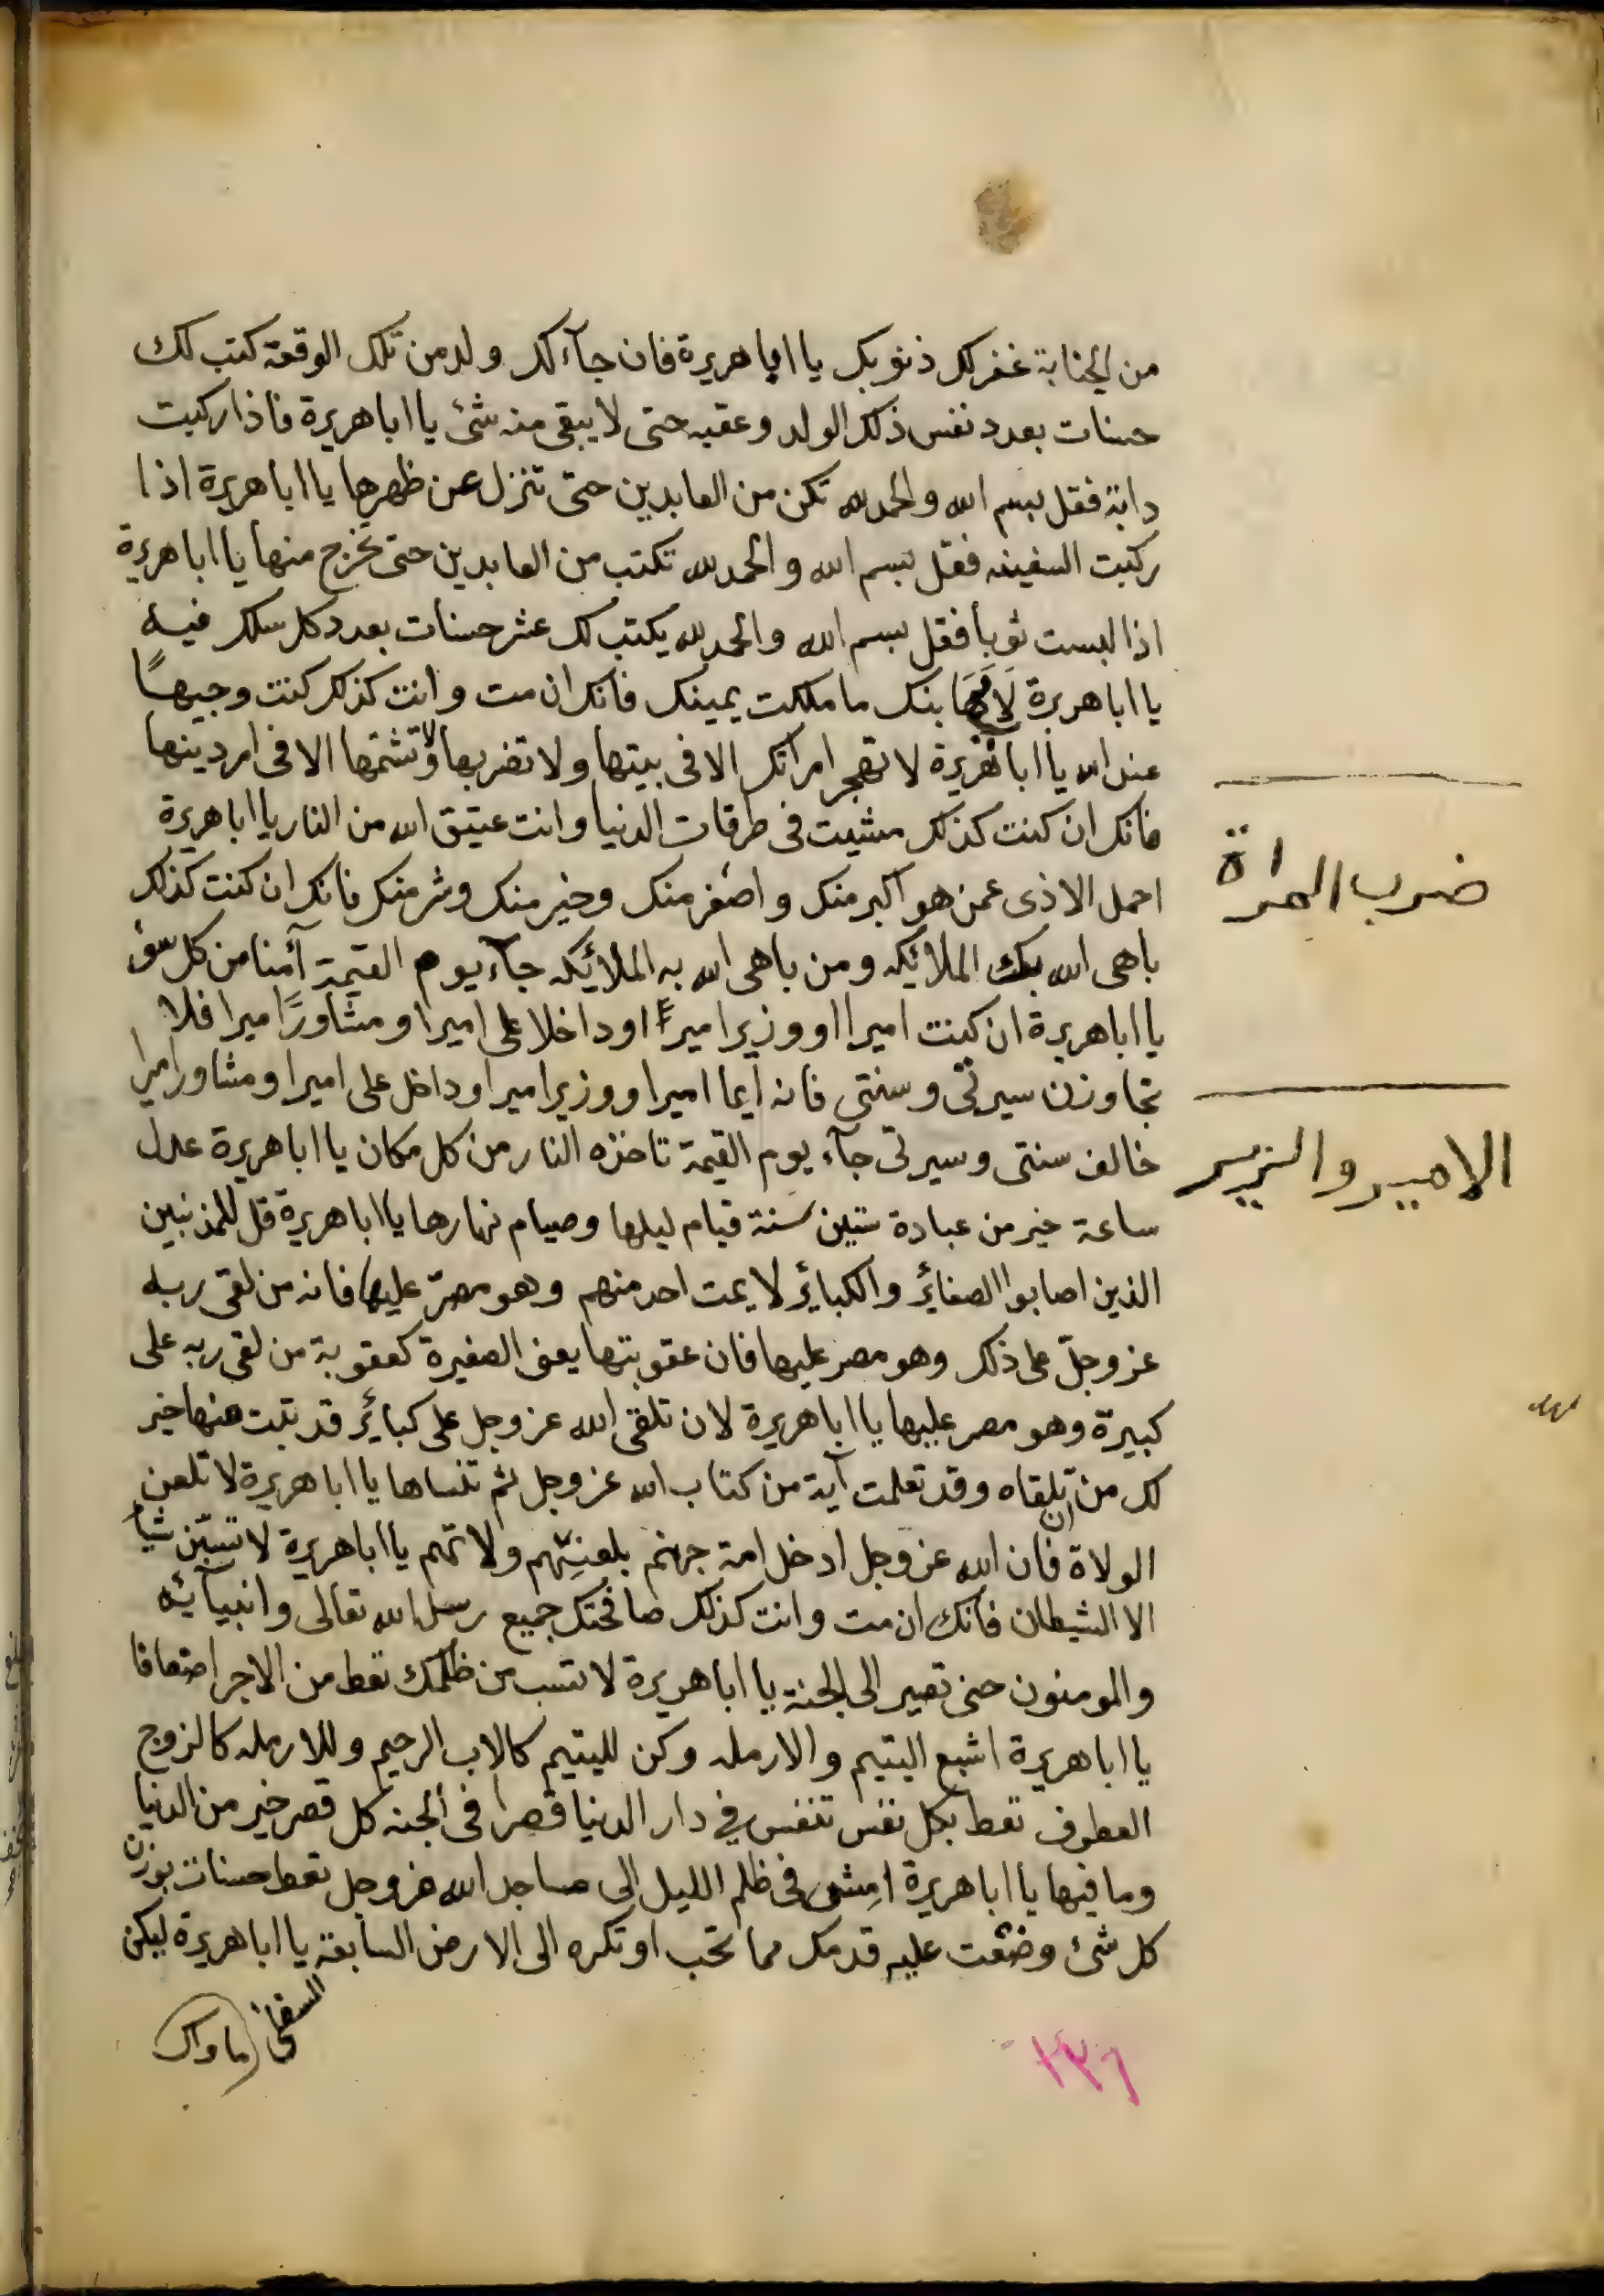 من الجنابة غفر لك ذنوبك يا ابا هريرة فان جآء لك ولد من تلك الوقعة كتب لك
حسنات بعدد نفس ذلك الولد وعقبه حتى لا يبقى منه شئ يا ابا هريرة فاذا ركبت
دابة فقل بسم الله والحمد لله تكن من العابدين حتى تنزل عن ظهرها يا ابا هريرة اذا
ركبت السفينه فقل بسم الله والحمد لله تكتب من العابدين حتى تخرج منها يا ابا هريرة
اذا لبست ثوبا فقل بسم الله والحمد لله يكتب لك عشر حسنات بعدد كل سلك فيه
يا ابا هريرة ما ملكت يمينك فانك ان مت وانت كذلك كنت وجيهًا
عند الله يا ابا هريرة لا تهجر امراتك الا فى بيتها ولا تضربها ولا تشتمها الا فى امر دينها
فانك ان كنت كذلك مشيت فى طرقات الدنيا وانت عتيق الله من النار يا ابا هريرة
احمل الاذى عمن هو اكبر منك واصغر منك وخير منك وشر منك فانك ان كنت كذلك
باهى الله بك الملائكه ومن باهى الله به الملائكه جآء يوم القيمة آمنا من كل سوء
يا ابا هريرة ان كنت اميرا او وزير امير او داخلا على امير او مشاورًا امير فلا
تجاوزن سيرتى وسنتى فانه ايما امير او وزير امير او داخل على امير او مشاور امير
خالف سنتى وسيرتى جآء يوم القيمة تاخذه النار من كل مكان يا ابا هريرة عدل
ساعة خير من عبادة ستين سنة قيام ليلها وصيام نهارها يا ابا هريرة قل للمذنبين
الذين اصابوا الصغائر والكبائر لا يمت احد منهم وهو مصرّ عليها فانه من لقى ربه
عز وجلّ على ذلك وهو مصر عليها فان عقوبتها يعنى الصغيرة كعقوبة من لقى ربه على
كبيرة وهو مصر عليها يا ابا هريرة لان تلقى الله عز وجل على كبائر قد تبت منها خير
لك من ان تلقاه وقد تعلمت آية من كتاب الله عز وجل ثم تنساها يا ابا هريرة لا تلعن
الولاة فان الله عز وجل ادخل امة جهنم بلعنتهم ولاتهم يا ابا هريرة لا تسبّن شيأ
الا الشيطان فانك ان مت وانت كذلك صافحتك جميع رسل الله تعالى وانبيآئه
والمومنون حتى تصير الى الجنة يا ابا هريرة لا تسب من ظلمك تعط من الاجر اضعافا
يا ابا هريرة اشبع اليتيم والارمله وكن لليتيم كالاب الرحيم وللارمله كالزوج
العطوف تعط بكل نفس تنفس في دار الدنيا قصرا فى الجنه كل قصر خير من الدنيا
وما فيها يا ابا هريرة امش فى ظلم الليل الى مساجد الله عز وجل تعط حسنات بوزن
كل شئ وضعت عليه قدمك مما تحب او تكره الى الارض السابعة يا ابا هريرة ليكن
ماواك
١٣٦
ضرب المراة
الامير والوزير